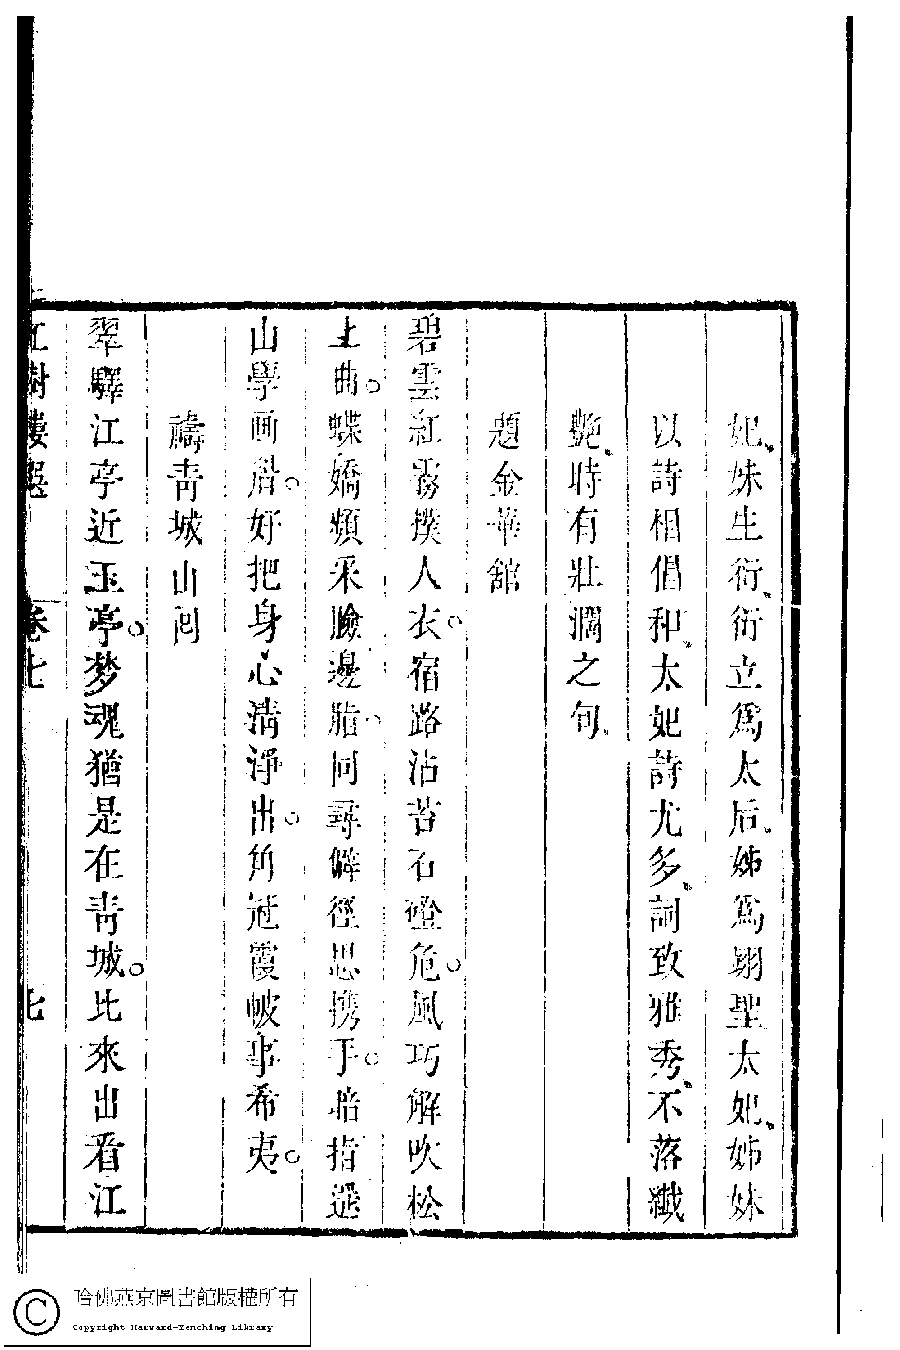 妃妹生衍衍立爲太后姊爲翊聖太妃姊妹
以詩相倡和太妃詩尤多詞致雅秀不落纖
艷時有壯濶之句
題金華舘
碧雲紅霧撲人衣宿路沾苔石磴危風巧解吹松
上曲蝶嬌頻采臉邊脂同尋僻徑思携手暗指遥
山學画眉好把身心清淨出角冠霞帔事希夷
禱青城山回
翠驛江亭近玉亭梦魂猶是在青城比來出看江
紅樹樓選 卷七 七
哈佛燕京圖書館版權所有
Copyright Harvard-Yenching Library